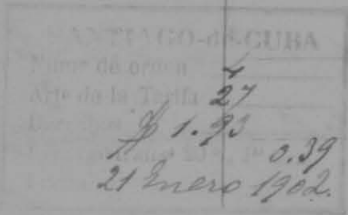 SANTIAGO-de-CUBA
Núm. de orden 4
Arto de la Tarifa 27
$ 1.93
0.39
21 Enero 1902.